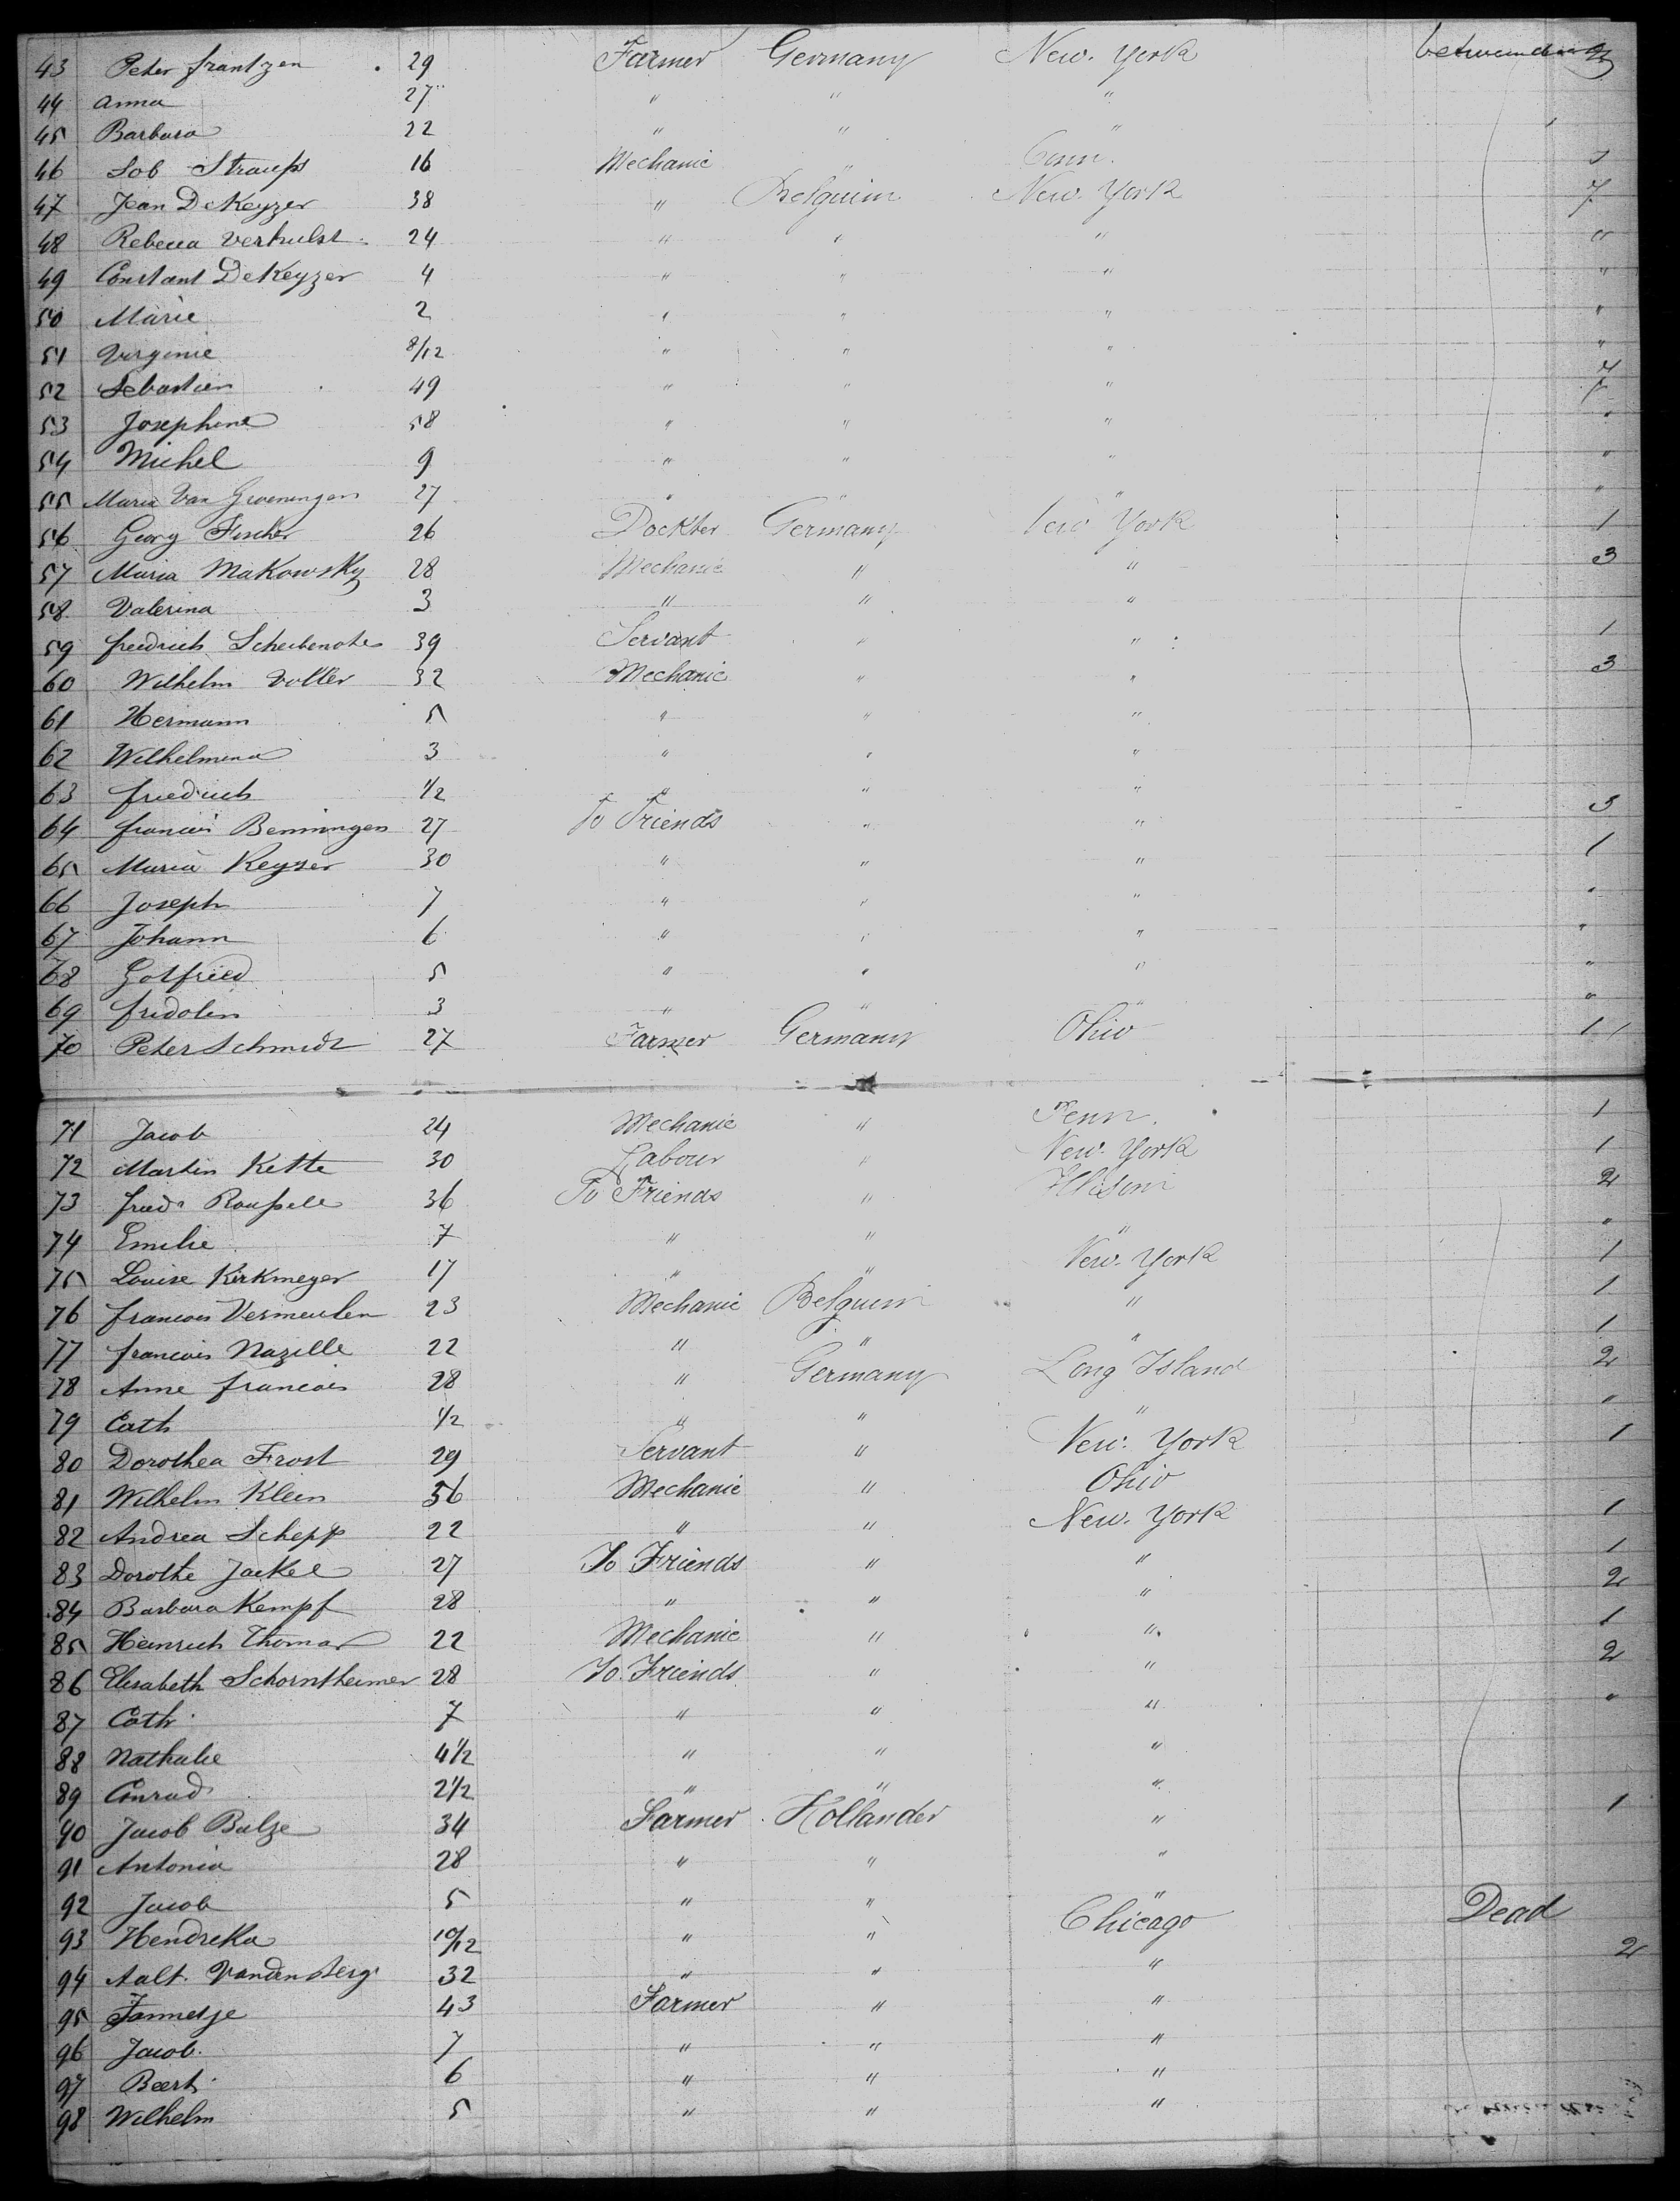 43 Peter frantzen 29 Farmer Germany New. York
44 Anna 27 " " "
45 Barbara 22 " " "
46 Lob Strauss 16 Mechanic " Conn.
47 Jean DeKeyzer 38 " Belguim New. York 7
48 Rebecca Verhulst 24 " " " "
49 Constant DeKeyzer 4 " " " "
50 Marie 2 " " " "
51 Virginie 8/12 " " " "
52 Sebastien 49 " " "
53 Josephine 58 " " " "
54 Michel 9 " " " "
55 Maria Van Groeningen 27 " " " "
56 Georg Fischer 26 Dockter Germany New York 1
57 Maria Makowsky 28 Mechanic " " 3
58 Valerina 3 " " "
59 friedrich 39 Servant " " 1
60 Wilhelm Voller 32 Mechanic " " 3
61 Hermann 5 " " "
62 Wilhelmina 3 " " "
63 friedrich 1/2 " " "
64 francois Benningen 27 To Friends " " 3
65 Maria Keyser 30 " " " 1
66 Joseph 7 " " " "
67 Johann 6 " " " "
68 Gotfried 5 " " " "
69 fridolin 3 " " " "
70 Peter Schmidt 27 Farmer Germany Ohio 1
71 Jacob 24 Mechanic " Penn. 1
72 Martin Kette 30 Labour " New. York 1
73 fried. 36 To Friends " 2
74 Emilie 7 " " " "
75 Louise Kirkmeyer 17 " " New. York 1
76 francois Vermeulen 23 Mechanic Belguim " 1
77 francois Nazille 22 " " " 1
78 Anne francois 28 " Germany Long Island 2
79 Cath 1/2 " " " "
80 Dorothea Frost 29 Servant " New. York 1
81 Wilhelm Klein 36 Mechanic " Ohio
82 Andrea Schepp 22 " " New. York 1
83 Dorothe Jackel 27 To Friends " " 1
84 Barbara Kempf 28 " " " 2
85 Heinrich Thomas 22 Mechanic " " 1
86 Elisabeth Schorntheimer 28 To Friends " " 2
87 Cath. 7 " " " "
88 Nathalie 4 1/2 " " "
89 Conrad 2 1/2 " " "
90 Jacob Bulze 34 Farmer Hollander " 1
91 Antonia 28 " " "
92 Jacob 5 " " "
93 Hendreka 10/12 " " Chicago Dead
94 Aalt. Vanden Berg 32 " " " 2
95 Jannetje 43 Farmer " "
96 Jacob. 7 " " "
97 Beert. 6 " " "
98 Wilhelm 5 " " "